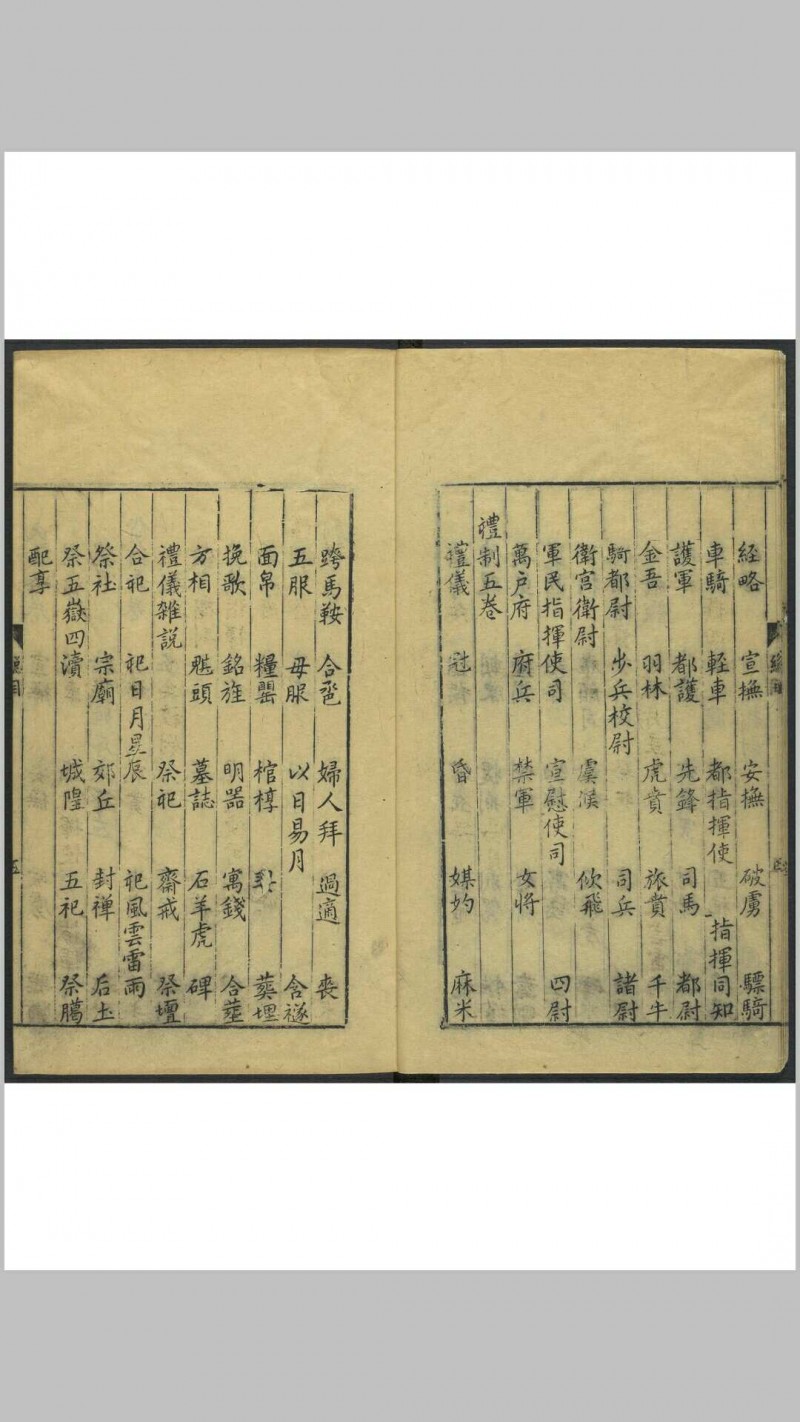 経略 宣撫 安撫 破虜 驃騎
車騎 軽車 都指揮使 指揮同知
護軍 都護 先鋒 司馬 都尉
金吾 羽林 虎賁 旅賁 千牛
騎都尉 步兵校尉 司兵 諸尉
衛宮衛尉 虞候 佽飛
軍民指揮使司 宣慰使司 四尉
萬戶府 府兵 禁軍 女将
禮制五卷
禮儀 冠 昏 媒妁 麻米
跨馬鞍 合巹 婦人拜 過適 喪
五服 母服 以日易月 含襚
面帛 糧罌 棺椁 葬埋
挽歌 銘旌 明器 寓錢 合葬
方相 魌頭 墓誌 石羊虎 碑
禮儀雜説 祭祀 齋戒 祭壇
合祀 祀日月星辰 祀風雲雷雨
祭社 宗廟 郊丘 封禅 后土
祭五嶽四瀆 城隍 五祀 祭臈
配享